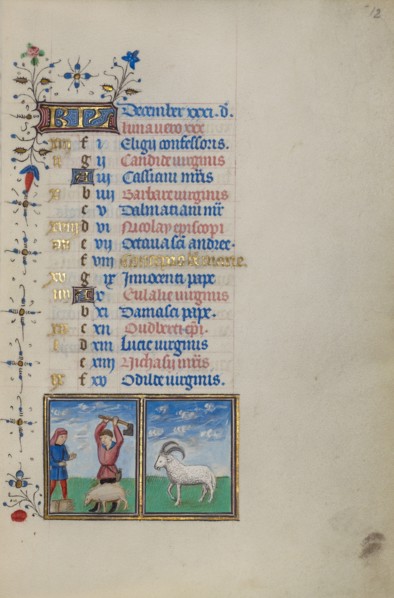 12
KL December xxxi. d.
luna vero xxx
xiii f i Eligii confessoris.
ii g ii Candide virginis
A iii Cassiani mris
x b iiii Barbare virginis
c v Dalmatiani mr
xviii d vi Nicolay episcopi
vii e vii Octava sci andree.
f viii Conceptio be marie.
xv g ix Innocenti pape
iiii A x Eulalie virginis
b xi Damasci pape.
xii c xii Audberti epi.
i d xiii Lucie virginis
e xiiii Nichasii mris.
ix f xv Odilde virginis.